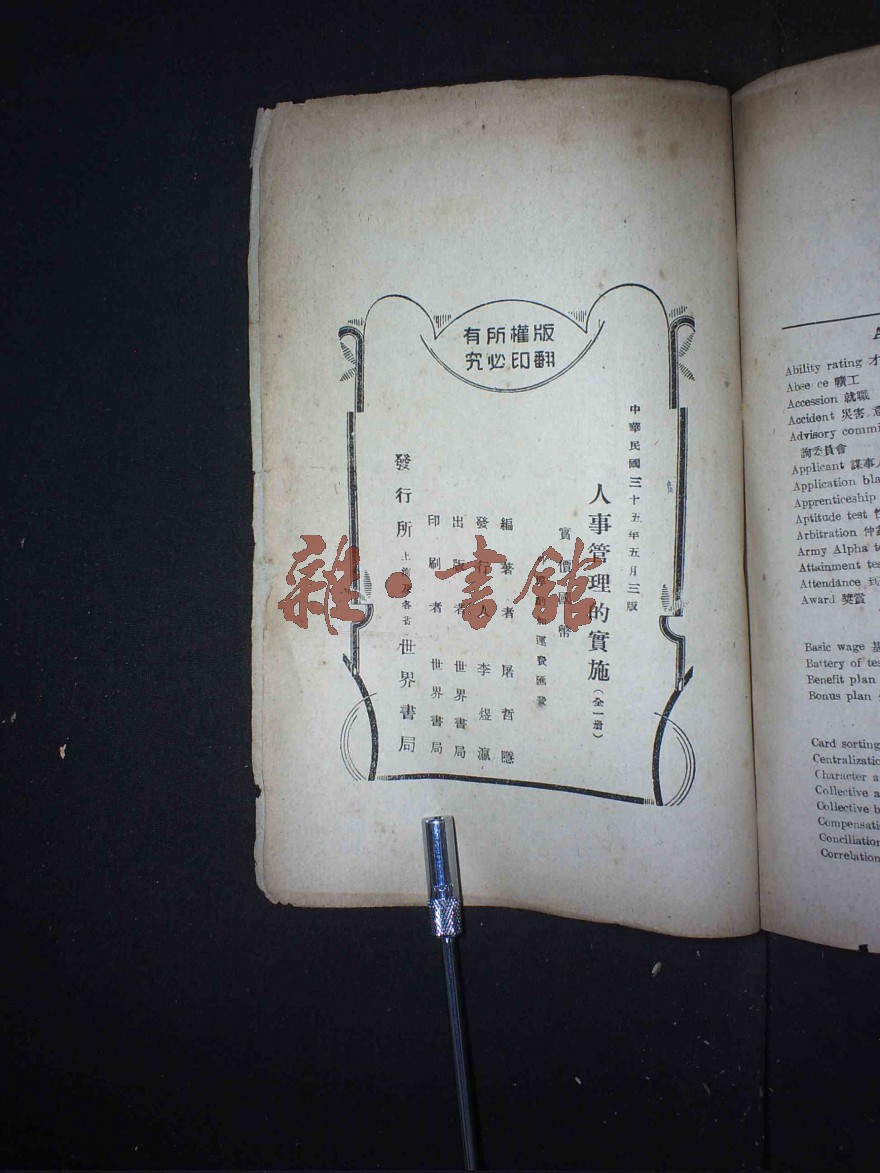 版權所有
翻印必究
中華民國三十五年五月三版
人事管理的實施(全一册)
實價國幣
運費匯費
編著者 屠哲隱
發行人 李煜瀛
出版者 世界書局
印刷者 世界書局
發行所 上海及各省 世界書局
雜·書館
Ability rating
Abse ce 曠工
Accession 就職
Accident 災害
Advisory
詢委員會
Applicant 謀事
Application
Apprenticeship
Aptitude test
Arbitration
Army Alpha
Attainment
Attendance
Award 獎賞
Basic wage
Battery of
Benefit plan
Bonus plan
Card sorting
Character
Collective
Collective